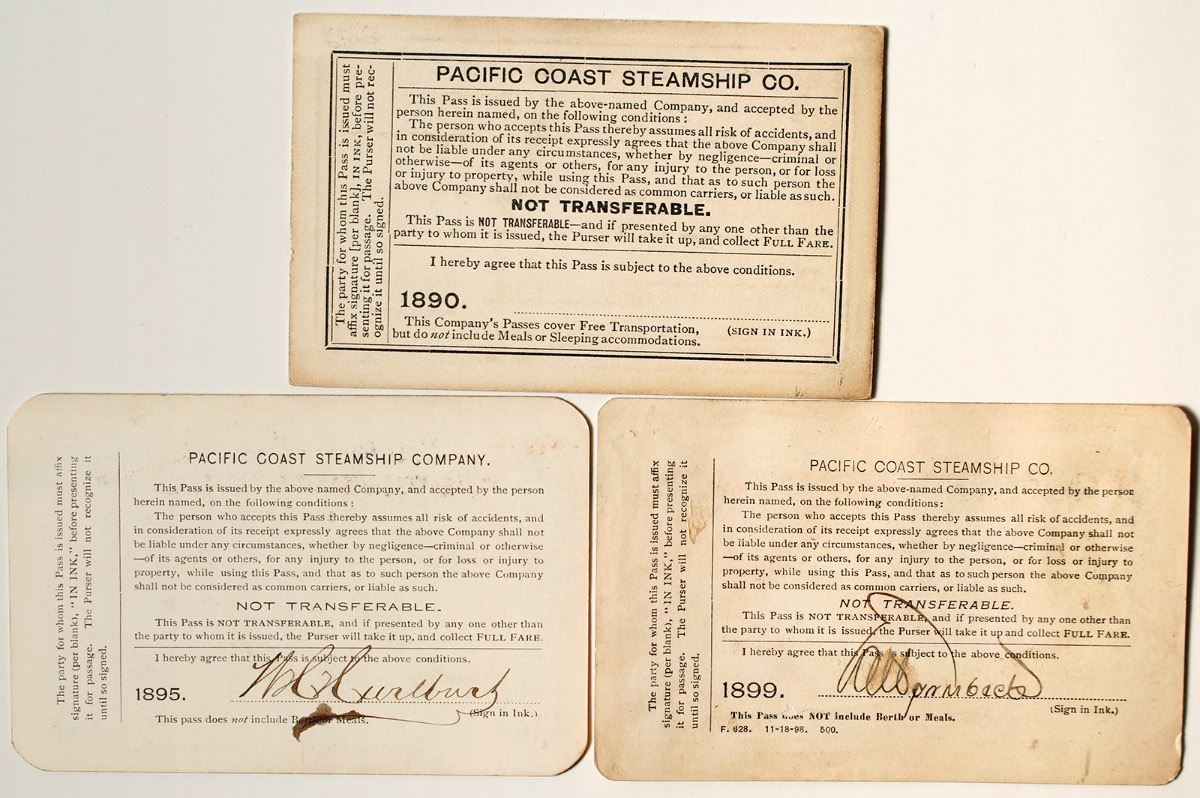 The party for whom this Pass is issued must
affix signature [per blank], IN INK, before pre-
senting it for passage. The Purser will not rec-
ognize it until so signed.
PACIFIC COAST STEAMSHIP CO.
This Pass is issued by the above-named Company, and accepted by the
person herein named, on the following conditions :
The person who accepts this Pass thereby assumes all risk of accidents, and
in consideration of its receipt expressly agrees that the above Company shall
not be liable under any circumstances, whether by negligence—criminal or
otherwise—of its agents or others, for any injury to the person, or for loss
or injury to property, while using this Pass, and that as to such person the
above Company shall not be considered as common carriers, or liable as such.
NOT TRANSFERABLE.
This Pass is NOT TRANSFERABLE—and if presented by any one other than the
party to whom it is issued, the Purser will take it up, and collect FULL FARE.
I hereby agree that this Pass is subject to the above conditions.
1890.
This Company's Passes cover Free Transportation,
but do not include Meals or Sleeping accommodations.
(SIGN IN INK.)
The party for whom this Pass is issued must affix
signature (per blank), "IN INK," before presenting
it for passage. The Purser will not recognize it
until so signed.
PACIFIC COAST STEAMSHIP COMPANY.
This Pass is issued by the above-named Company, and accepted by the person
herein named, on the following conditions :
The person who accepts this Pass thereby assumes all risk of accidents, and
in consideration of its receipt expressly agrees that the above Company shall not
be liable under any circumstances, whether by negligence—criminal or otherwise
—of its agents or others, for any injury to the person, or for loss or injury to
property, while using this Pass, and that as to such person the above Company
shall not be considered as common carriers, or liable as such.
NOT TRANSFERABLE.
This Pass is NOT TRANSFERABLE, and if presented by any one other than
the party to whom it is issued, the Purser will take it up, and collect FULL FARE.
I hereby agree that this Pass is subject to the above conditions.
1895.
(Sign in Ink.)
This pass does not include Berth or Meals.
The party for whom this Pass is issued must affix
signature (per blank), "IN INK," before presenting
it for passage. The Purser will not recognize it
until so signed.
PACIFIC COAST STEAMSHIP CO.
This Pass is issued by the above-named Company, and accepted by the person
herein named, on the following conditions:
The person who accepts this Pass thereby assumes all risk of accidents, and
in consideration of its receipt expressly agrees that the above Company shall not
be liable under any circumstances, whether by negligence—criminal or otherwise
—of its agents or others, for any injury to the person, or for loss or injury to
property, while using this Pass, and that as to such person the above Company
shall not be considered as common carriers, or liable as such.
NOT TRANSFERABLE.
This Pass is NOT TRANSFERABLE, and if presented by any one other than
the party to whom it is issued, the Purser will take it up and collect FULL FARE.
I hereby agree that this Pass is subject to the above conditions.
1899.
(Sign in Ink.)
This Pass does NOT include Berth or Meals.
F. 628. 11-18-98. 500.